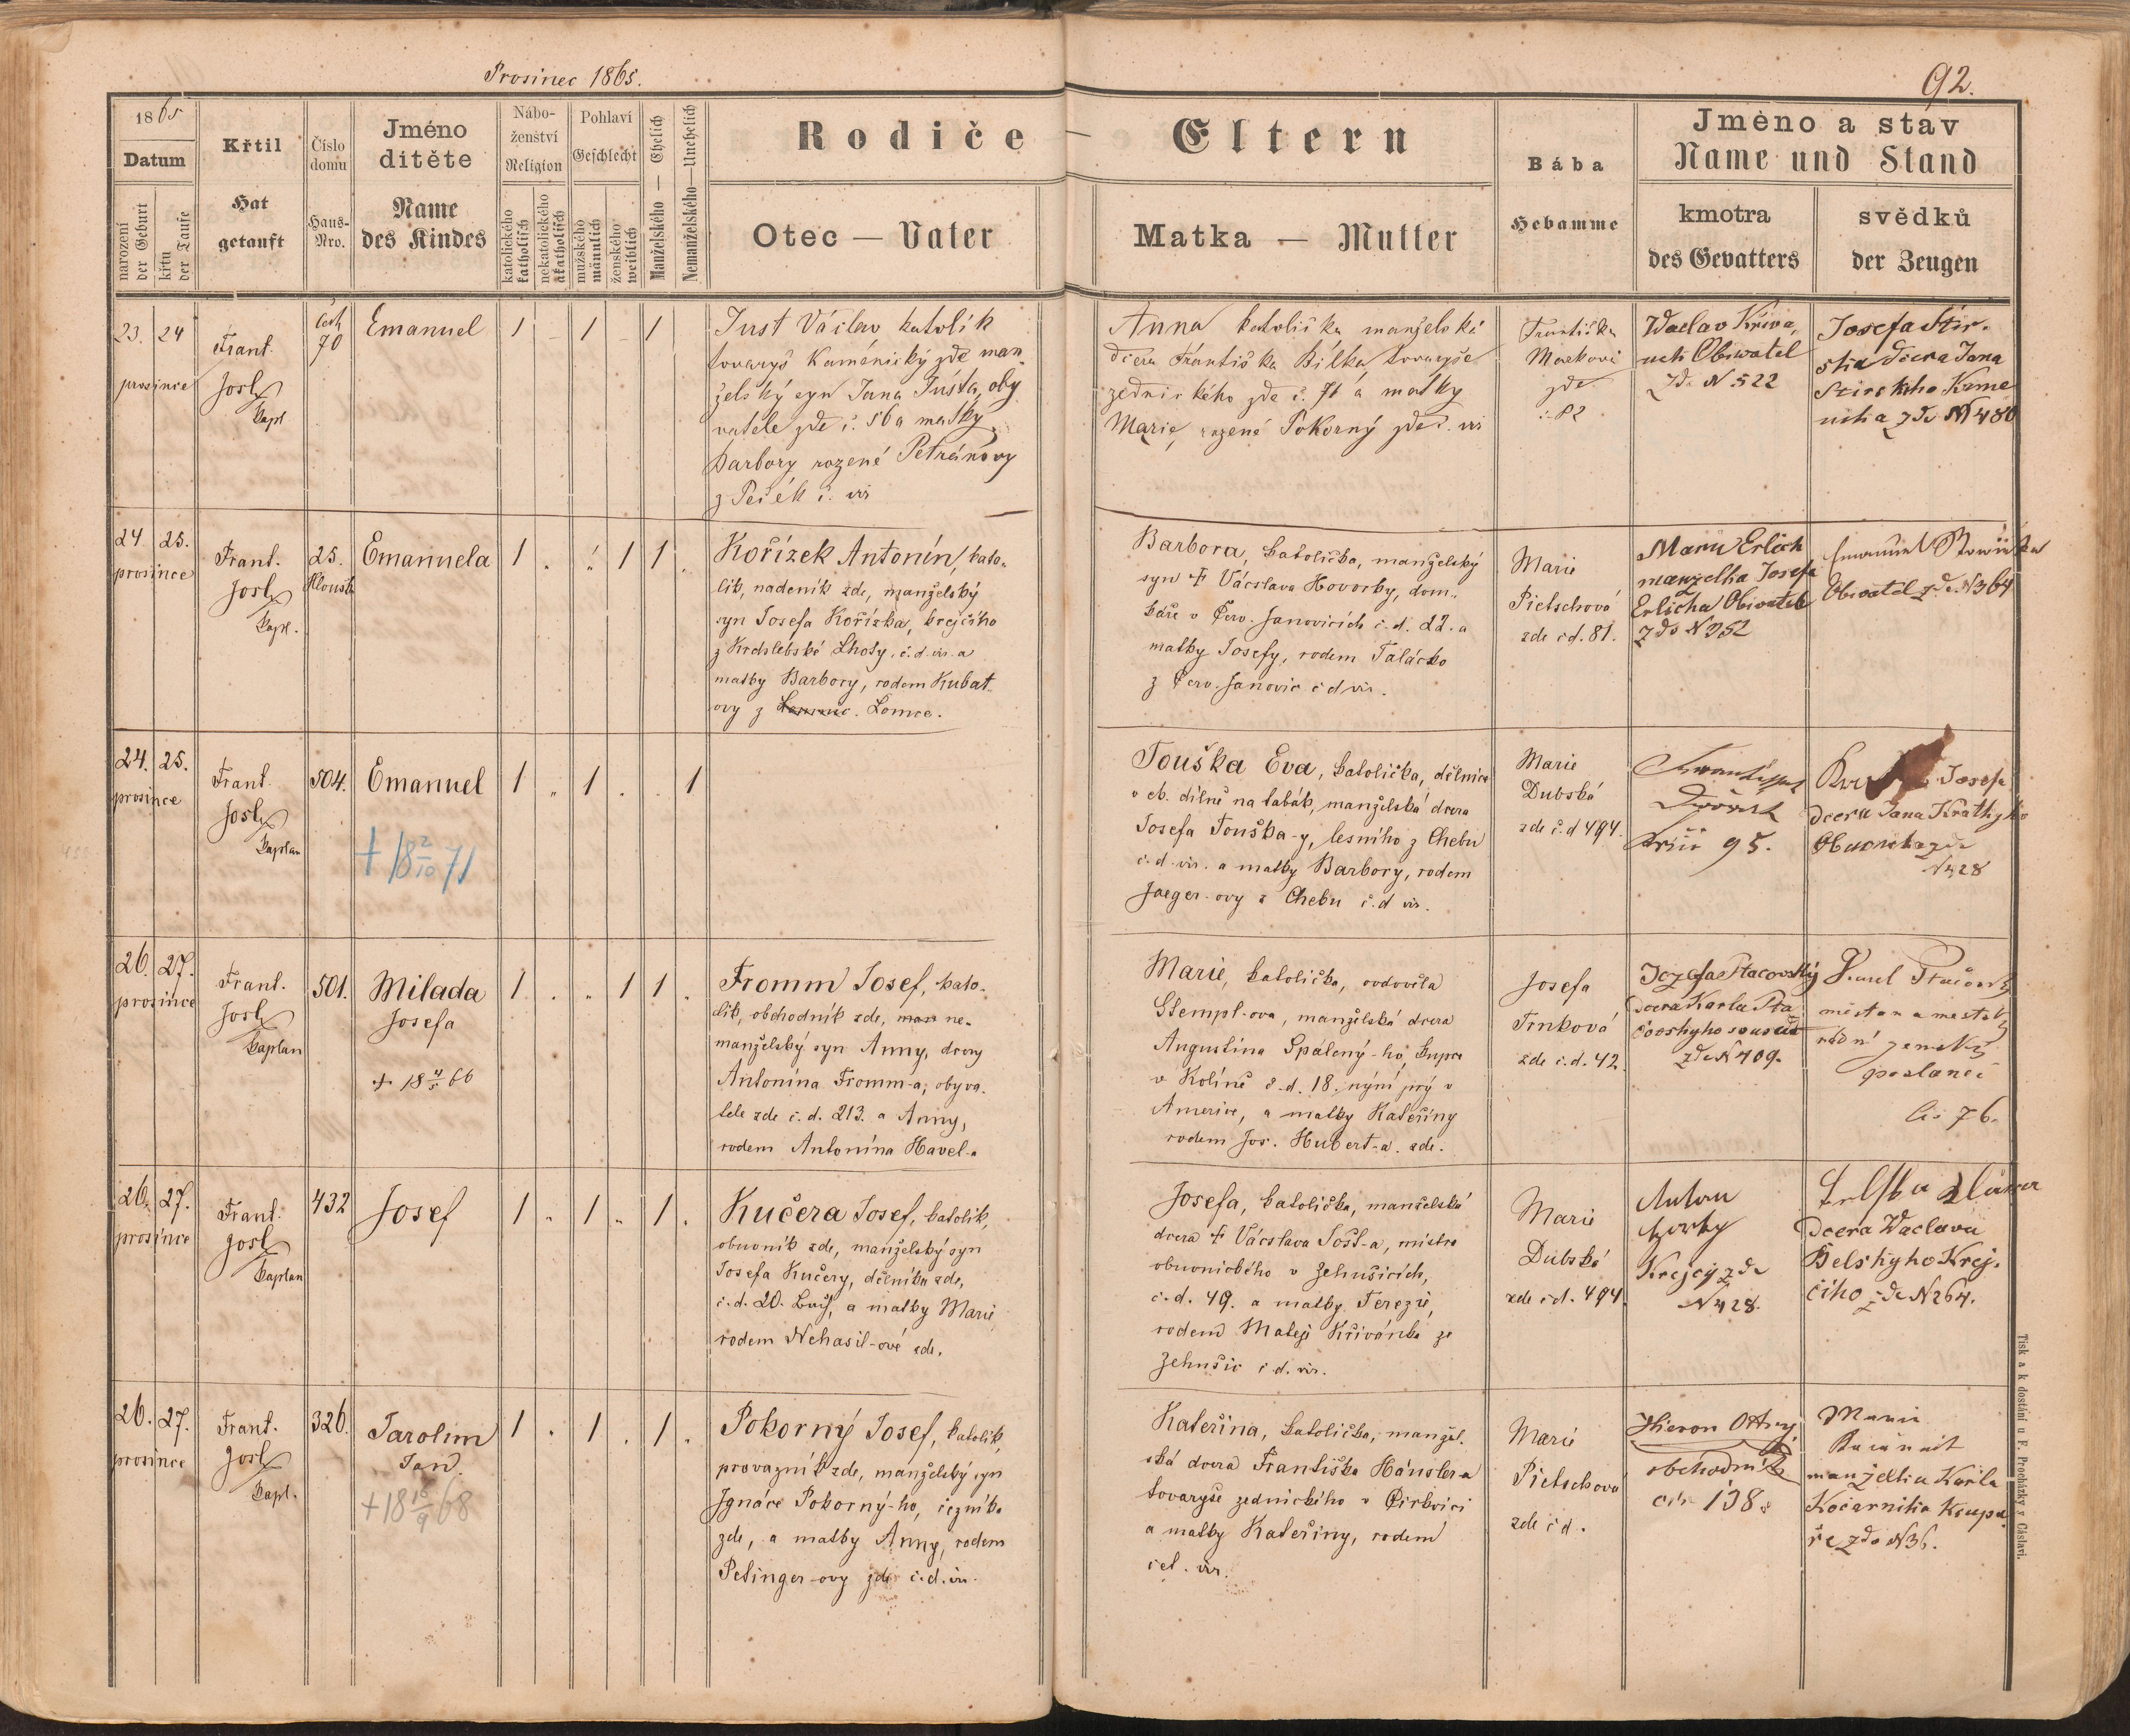 Prosinec 1865.
92.
1865
Datum
narození
der Geburt
křtu
der Taufe
Křtil
Hat
getauft
Číslo
domu
Haus-
Nro.
Jméno
dítěte
Name
des Kindes
Nábo-
ženství
Religion
katolického
katholisch
nekatolického
akatholisch
Pohlaví
Geschlecht
mužského
männlich
ženského
weiblich
Manželského — Ehelich
Nemanželského — Unehelich
Rodiče — Eltern
Otec — Vater
Matka — Mutter
Bába
Hebamme
Jméno a stav
Name und Stand
kmotra
des Gevatters
svědků
der Zeugen
23. 24
prosince
Frant.
Josl
Kapl
70
Emanuel
1 1 1
Just Václav katolík
tovaryš Kamenický zde man-
želský syn Jana Justa, oby
vatele zde č. 56 a matky
Barbory rozené Petránovy
z Peček č.
Anna katolička manželská
dcera Františka Bílka tovaryše
zednického zde č. 71 a matky
Marie, rozené Pokorný zde č.
Františka
zde
č. 82
Waclav Křiva,
nek Obiwatel
zde N. 522
Josefa
dcera Jana
zde N 480
24. 25.
prosince
Frant.
Josl
Kapl.
25.
Hloušk
Emanuela
1 1 1
Kořízek Antonín, kato-
lík, nádeník zde, manželský
syn Josefa Kořízka, krejčího
z Lhoty. č.d. a
matky Barbory, rodem Kubat-
ovy z Lomce.
Barbora, katolička, manželský
syn † Václava Hovorky, dom-
káře v Červ. Janovicích č.d. 22. a
matky Josefy, rodem Talácko
z Červ. Janovic č d
Marie
Pietschová
zde č d. 81.
Marie Erlich
manželka Josefa
Erlicha Obiwatele
zde N 352
Emanuel
Obiwatel zde N 364
24. 25.
prosince
Frant.
Josl
Kaplan
504.
Emanuel
+ 18 2/10 71
1 1 1
Touška Eva, katolička, dělnice
v ck. dílně na tabák, manželská dcera
Josefa Touška-y, lesního z Chebu
č.d. a matky Barbory, rodem
Jaeger-ovy z Chebu č.d
Marie
Dubská
zde č.d 494.
Dvořák
95.
Josefa
dcera Jana Krátkýho
zde
N 428
26. 27.
prosince
Frant.
Josl
Kaplan
501.
Milada
Josefa
+ 18 4/5 66
1 1 1
Fromm Josef, kato-
lík, obchodník zde, ne-
manželský syn Anny, dcery
Antonína Fromm-a, obyva-
tele zde č.d. 213. a Anny,
rodem Antonína Havel-a
Marie, katolička, ovdověla
Stempl-ova, manželská dcera
Augustina Spálený-ho, kupce
v Kolíně č.d. 18. nyní prý v
Americe, a matky Kateřiny
rodem Jos. Hubert-a. zde.
Josefa
Trnková
zde č.d. 42.
Jozefa Ptacovský
dcera Karla Pta
čovskyho souseda
zde N 409.
Karel Ptačovský
měštan a městský
radní zemský
poslanec
čis 76.
26. 27.
prosince
Frant.
Josl
Kaplan
432
Josef
1 1 1
Kučera Josef, katolík,
obuvník zde, manželský syn
Josefa Kučery, dělníka zde,
č.d. 20. a matky Marie
rodem Nehasil-ové zde.
Josefa, katolička, manželská
dcera † Václava Sošt-a, mistra
obuvnického v Žehušicích,
č.d. 49. a matky Terezie,
rodem Matěje Křivánka ze
Žehušic č.d.
Marie
Dubská
zde č d. 494.
Anton
Krejcy zde
N 428.
dcera Waclava
Belskyho Krej-
čiho zde N 264.
26. 27.
prosince
Frant.
Josl
Kapl.
326.
Jarolim
Jan.
+ 18 16/9 68
1 1 1
Pokorný Josef, katolík,
provazník zde, manželský syn
Ignáce Pokorný-ho, řezníka
zde, a matky Anny, rodem
Petinger-ovy zde č.d.
Kateřina, katolička, manžel-
ská dcera Františka Hänsler-a
tovaryše zednického v Církvici
a matky Kateřiny, rodem
Marie
Pietschová
zde č d.
Hieron
obchodník
138
Marie
manželka Karla
Kočarnika Krupa
ře zde N 36.
Tisk a k dostání u F. Procházky v Čáslavi.